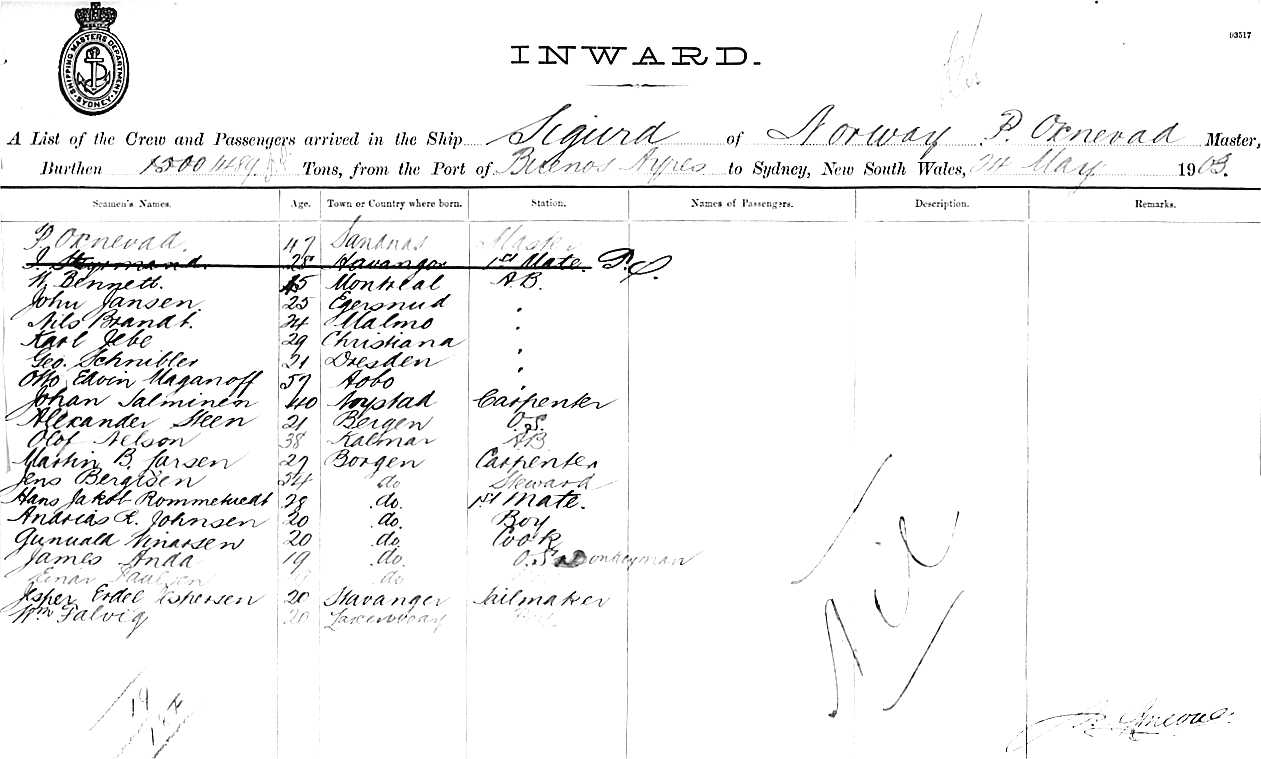 SHIPPING MASTERS DEPARTMENT SYDNEY
03517
INWARD.
A List of the Crew and Passengers arrived in the Ship Sigurd of Norway P. Ornevad Master,
Burthen 1500 1489 Tons, from the Port of Buenos Ayres to Sydney, New South Wales, 24 May 1903.
Seamen's Names. Age. Town or Country where born. Station. Names of Passengers. Description. Remarks.
P. Ornevad. 47 Sandnas Master
I. Styrmand. 28 Havanger 1st Mate. P.O.
W. Bennett. 45 Montreal AB.
John Jansen. 25 Egersnud "
Nils Brandt. 24 Malmo "
Karl Jebe 29 Christiana "
Geo. Schnibler 21 Dresden "
Otto Edvin Maganoff 57 Aobo "
Johan Salminen 40 Nystad Carpenter
Alexander Steen 21 Bergen O.S.
Olof Nelson 38 Kalmar AB
Martin B. Jarsen 27 Borgen Carpenter
Jens Bergtsen 34 do Steward
Hans Jakob Rommetvedt 28 do. 1st Mate.
Andrias L. Johnsen 20 do. Boy
Gunuald Vinarsen 20 do. Cook
James Anda 19 do. O.S. Donkeyman
Einar Paulsen do
Jesper Erdel Espersen 20 Stavanger Sailmaker
Wm Falvig 20
Nil
19